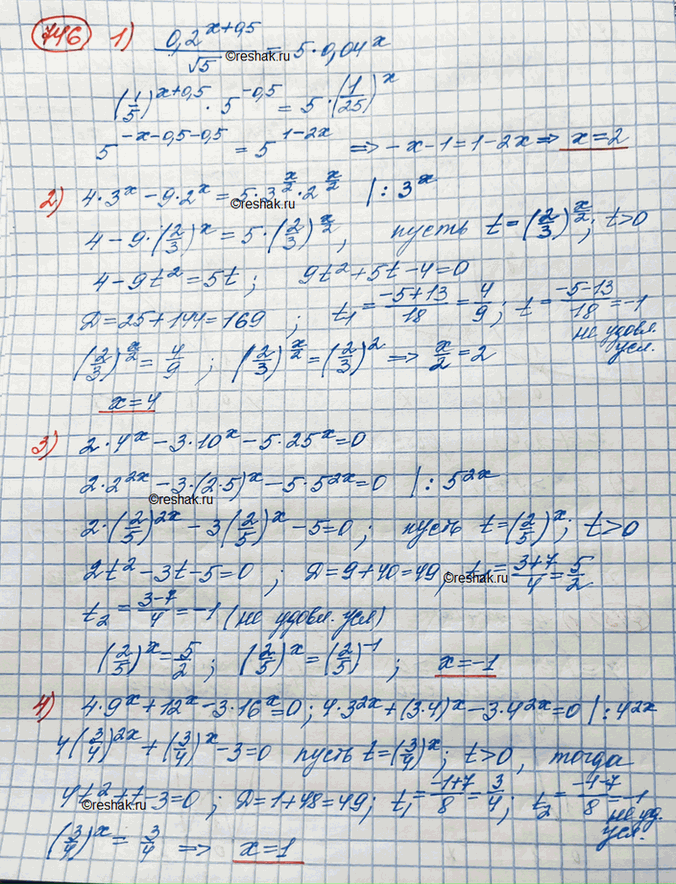 746 1) 0,2^(x+0,5)/√5 = 5·0,04^x
©reshak.ru
(1/5)^(x+0,5) · 5^(-0,5) = 5·(1/25)^x
5^(-x-0,5-0,5) = 5^(1-2x) ⇒ -x-1=1-2x ⇒ x=2
2) 4·3^x - 9·2^x = 5·3^(x/2)·2^(x/2) |: 3^x
©reshak.ru
4-9·(2/3)^x = 5·(2/3)^(x/2), пусть t=(2/3)^(x/2); t>0
4-9t²=5t; 9t²+5t-4=0
D=25+144=169; t₁=(-5+13)/18=4/9; t=(-5-13)/18=-1
не удовл.
усл.
(2/3)^(x/2)=4/9; (2/3)^(x/2)=(2/3)^2 ⇒ x/2=2
x=4
3) 2·4^x-3·10^x-5·25^x=0
2·2^(2x)-3·(2·5)^x-5·5^(2x)=0 |: 5^(2x)
©reshak.ru
2·(2/5)^(2x)-3(2/5)^x-5=0; пусть t=(2/5)^x; t>0
2t²-3t-5=0; D=9+40=49, t₁=(3+7)/4=5/2
©reshak.ru
t₂=(3-7)/4=-1 (не удовл. усл)
(2/5)^x=5/2; (2/5)^x=(2/5)^(-1); x=-1
4) 4·9^x+12^x-3·16^x=0; 4·3^(2x)+(3·4)^x-3·4^(2x)=0 |: 4^(2x)
4(3/4)^(2x)+(3/4)^x-3=0 пусть t=(3/4)^x; t>0, тогда
4t²+t-3=0; D=1+48=49; t₁=(-1+7)/8=3/4; t₂=(-1-7)/8=-1
©reshak.ru
не уд.
усл.
(3/4)^x=3/4 ⇒ x=1